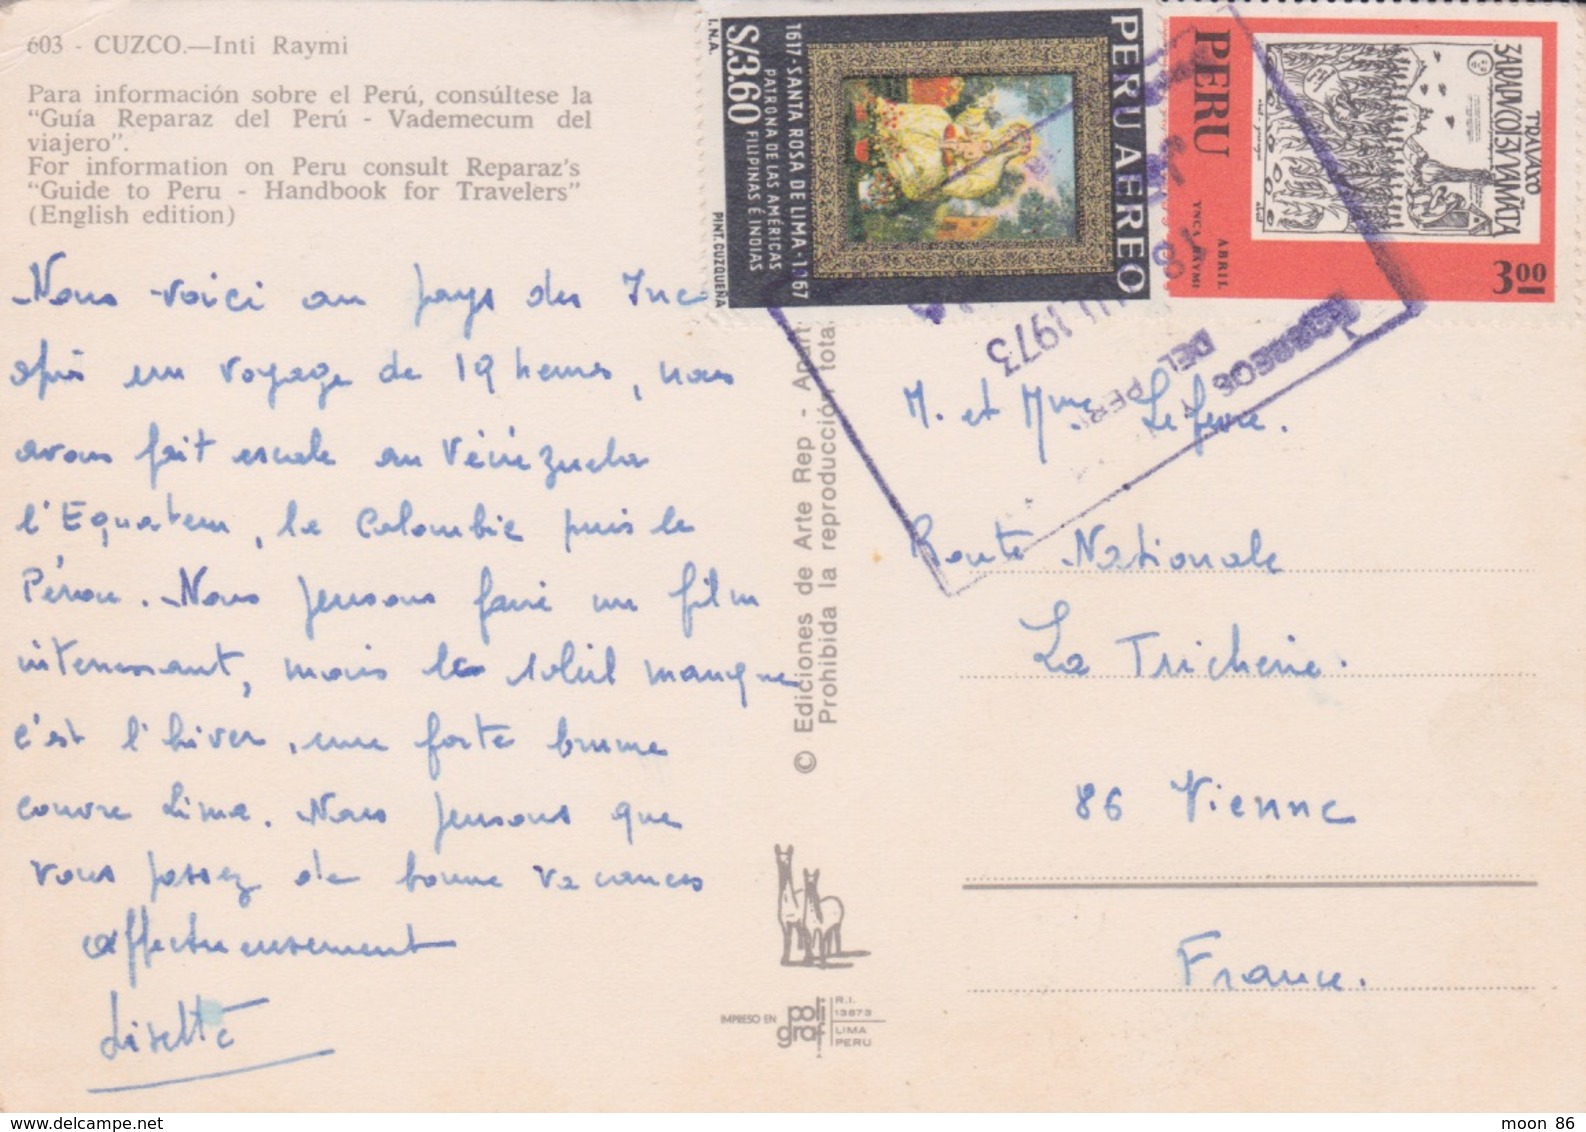 603 - CUZCO.—Inti Raymi
Para información sobre el Perú, consúltese la
“Guía Reparaz del Perú - Vademecum del
viajero”.
For information on Peru consult Reparaz’s
“Guide to Peru - Handbook for Travelers”
(English edition)
Nous voici au pays des Inca
après un voyage de 19 heures, nous
avons fait escale au Vénézuela
l'Equateur, la Colombie puis le
Pérou. Nous pensons faire un film
intéressant, mais le soleil manque
c'est l'hiver, une forte brume
couvre Lima. Nous pensons que
vous passez de bonne vacances
affectueusement
Lisette
© Ediciones de Arte Rep - Apart
Prohibida la reproducción total
IMPRESO EN
poli
graf
R.I.
13873
LIMA
PERU
PERU AEREO
1617-SANTA ROSA DE LIMA-1967
PATRONA DE LAS AMÉRICAS
FILIPINAS É INDIAS
S/.3.60
I.N.A.
PINT. CUZQUEÑA
PERU
YNCA RAYMI
ABRIL
3.00
TRAVAXO
CORREOS
DEL PERU
1973
M. et Mme Lefevre.
Route Nationale
La Tricherie.
86 Vienne
France.
moon 86